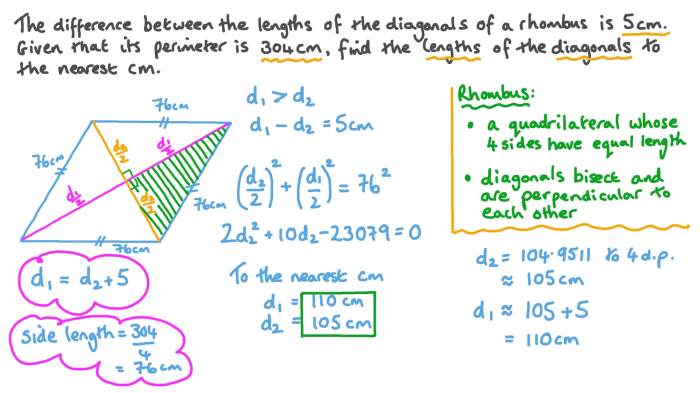 The difference between the lengths of the diagonals of a rhombus is 5cm.
Given that its perimeter is 304cm, find the lengths of the diagonals to
the nearest cm.
76cm
76cm
76cm
76cm
d₂/2
d₁/2
d₁/2
d₂/2
d₁ = d₂+5
Side length = 304/4
= 76cm
d₁ > d₂
d₁ - d₂ = 5cm
(d₂/2)² + (d₁/2)² = 76²
2d₂² + 10d₂ - 23079 = 0
To the nearest cm
d₁ = 110 cm
d₂ = 105 cm
Rhombus:
• a quadrilateral whose
4 sides have equal length
• diagonals bisect and
are perpendicular to
each other
d₂ = 104.9511 to 4 d.p.
≈ 105cm
d₁ ≈ 105 + 5
= 110cm